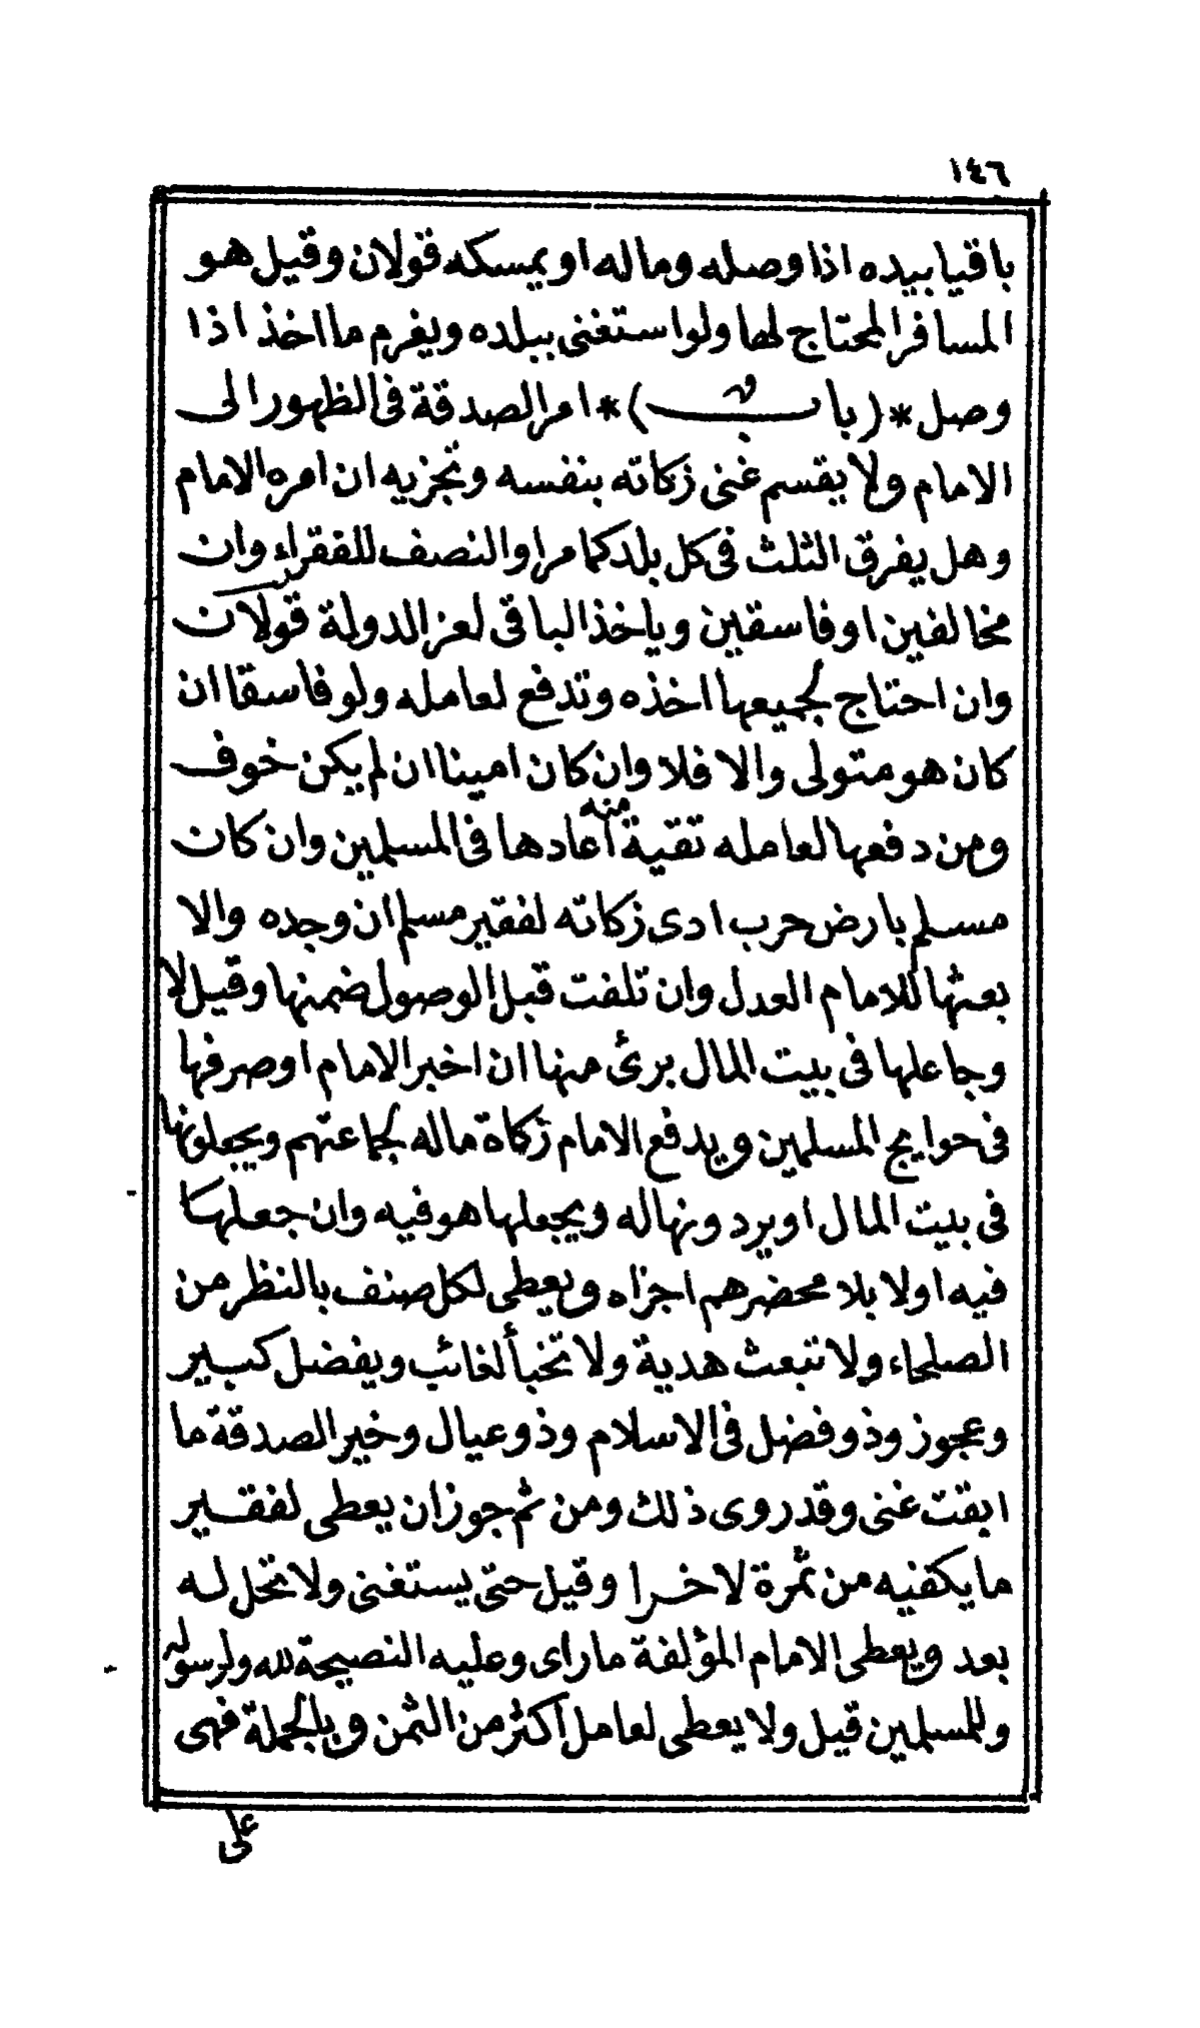 ١٤٦
باقيا بيده اذا وصله وماله او يمسكه قولان وقيل هو
المسافر المحتاج لها ولوا ستغنى ببلده ويغرم ما اخذ اذا
وصل *(باب)* امر الصدقة فى الظهور الى
الامام ولا يقسم غنى زكاته بنفسه وتجزيه ان امره الامام
وهل يفرق الثلث فى كل بلد كما مر او النصف للفقراء وان
مخالفين او فاسقين وياخذ الباقى لعز الدولة قولان
وان احتاج لجميعها اخذه وتدفع لعامله ولو فاسقا ان
كان هو متولى والا فلا وان كان امينا ان لم يكن خوف
ومن دفعها لعامله تقية منه أعادها فى المسلمين وان كان
مسلم بارض حرب ادى زكاته لفقير مسلم ان وجده والا
بعثها للامام العدل وان تلفت قبل الوصول ضمنها وقيل لا
وجاعلها فى بيت المال برئ منها ان اخبر الامام او صرفها
فى حوايج المسلمين ويدفع الامام زكاة ماله لجماعتهم ويجعلونها
فى بيت المال او يردونها له ويجعلها هو فيه وان جعلها
فيه اولا بلا محضرهم اجزاه ويعطى لكل صنف بالنظر من
الصلحاء ولا تبعث هدية ولا تخبأ لغائب ويفضل كبير
وعجوز وذو فضل فى الاسلام وذو عيال وخير الصدقة ما
ابقت غنى وقد روى ذلك ومن ثم جوز ان يعطى لفقير
ما يكفيه من ثمرة لاخرا وقيل حتى يستغنى ولا تحل له
بعد ويعطى الامام المؤلفة ما راى وعليه النصيحة لله ولرسوله
وللمسلمين قيل ولا يعطى لعامل اكثر من الثمن وبالجملة فهى
على